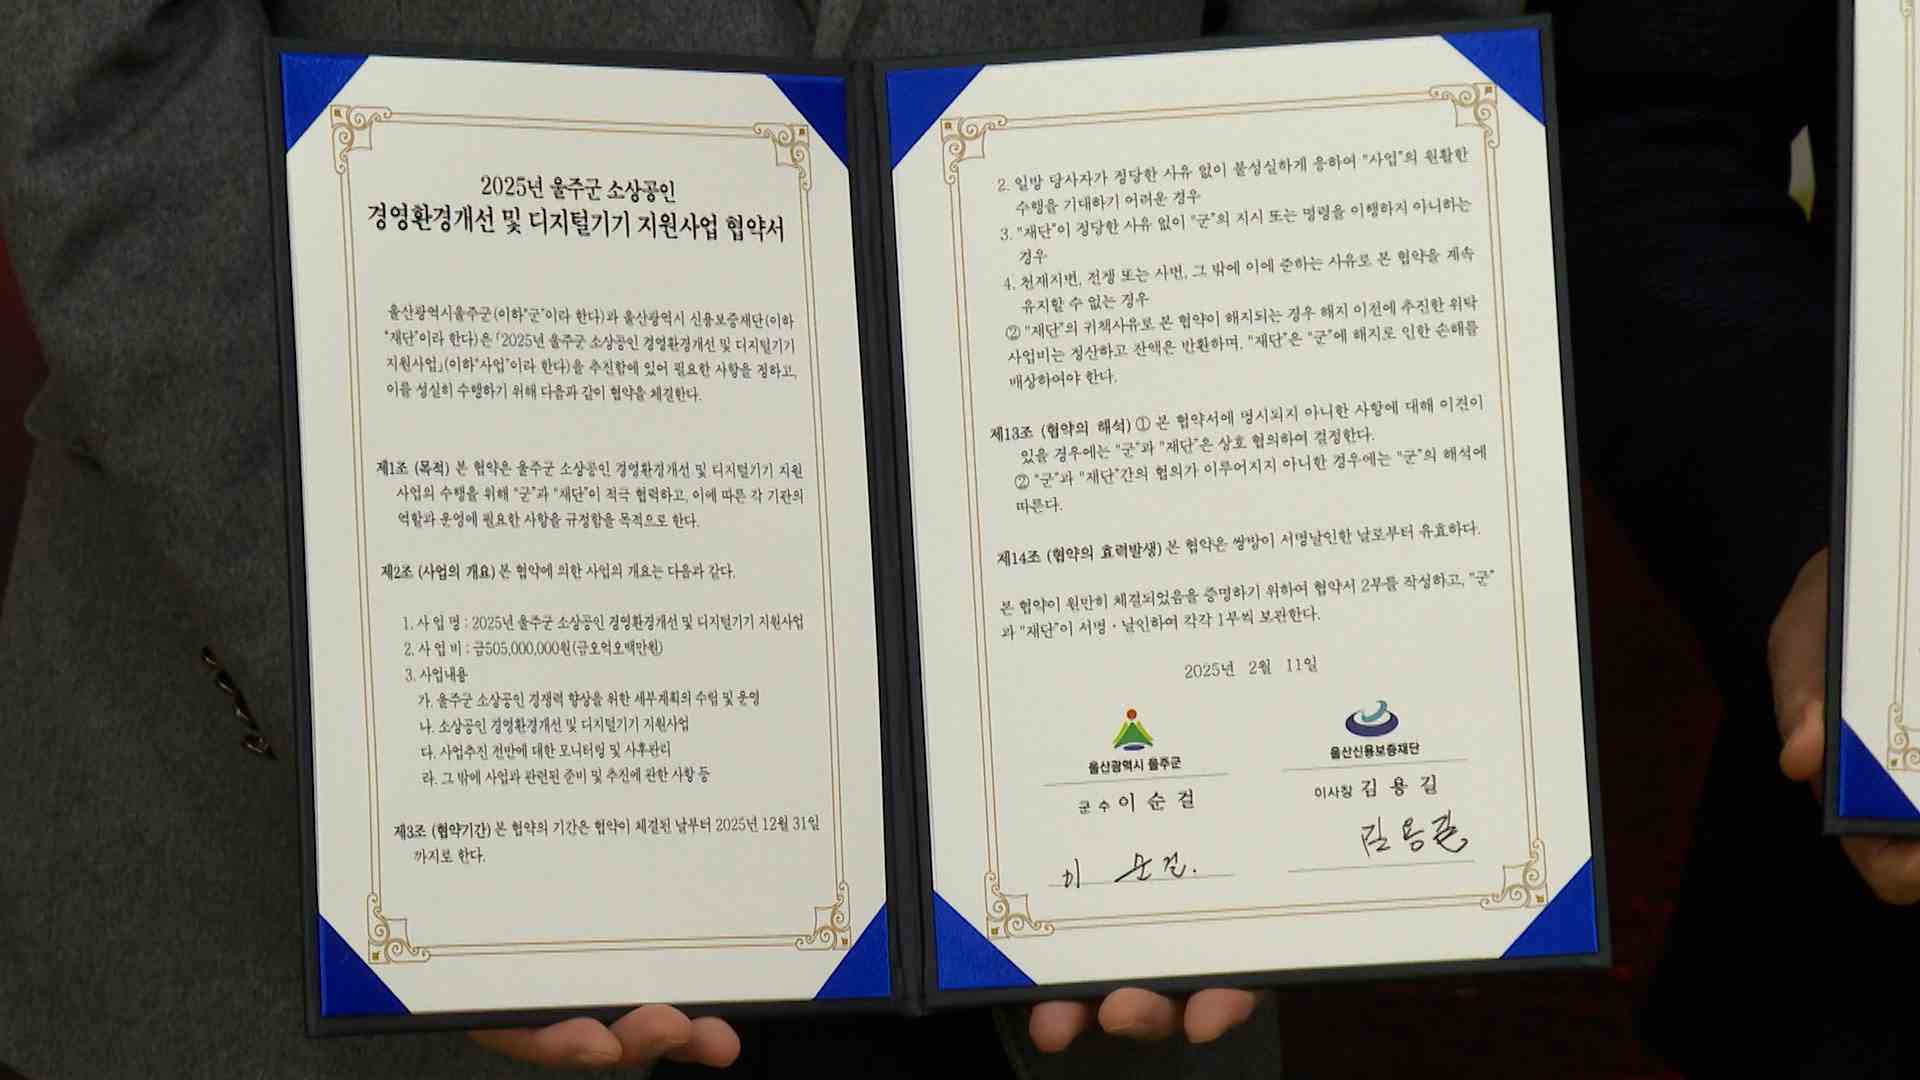 2025년 울주군 소상공인
경영환경개선 및 디지털기기 지원사업 협약서
울산광역시울주군(이하"군"이라 한다)과 울산광역시 신용보증재단(이하
"재단"이라 한다)은 「2025년 울주군 소상공인 경영환경개선 및 디지털기기
지원사업」(이하"사업"이라 한다)을 추진함에 있어 필요한 사항을 정하고,
이를 성실히 수행하기 위해 다음과 같이 협약을 체결한다.
제1조 (목적) 본 협약은 울주군 소상공인 경영환경개선 및 디지털기기 지원
사업의 수행을 위해 "군"과 "재단"이 적극 협력하고, 이에 따른 각 기관의
역할과 운영에 필요한 사항을 규정함을 목적으로 한다.
제2조 (사업의 개요) 본 협약에 의한 사업의 개요는 다음과 같다.
1. 사 업 명 : 2025년 울주군 소상공인 경영환경개선 및 디지털기기 지원사업
2. 사 업 비 : 금505,000,000원(금오억오백만원)
3. 사업내용
가. 울주군 소상공인 경쟁력 향상을 위한 세부계획의 수립 및 운영
나. 소상공인 경영환경개선 및 디지털기기 지원사업
다. 사업추진 전반에 대한 모니터링 및 사후관리
라. 그 밖에 사업과 관련된 준비 및 추진에 관한 사항 등
제3조 (협약기간) 본 협약의 기간은 협약이 체결된 날부터 2025년 12월 31일
까지로 한다.
2. 일방 당사자가 정당한 사유 없이 불성실하게 응하여 "사업"의 원활한
수행을 기대하기 어려운 경우
3. "재단"이 정당한 사유 없이 "군"의 지시 또는 명령을 이행하지 아니하는
경우
4. 천재지변, 전쟁 또는 사변, 그 밖에 이에 준하는 사유로 본 협약을 계속
유지할 수 없는 경우
② "재단"의 귀책사유로 본 협약이 해지되는 경우 해지 이전에 추진한 위탁
사업비는 정산하고 잔액은 반환하며, "재단"은 "군"에 해지로 인한 손해를
배상하여야 한다.
제13조 (협약의 해석) ① 본 협약서에 명시되지 아니한 사항에 대해 이견이
있을 경우에는 "군"과 "재단"은 상호 협의하여 결정한다.
② "군"과 "재단"간의 협의가 이루어지지 아니한 경우에는 "군"의 해석에
따른다.
제14조 (협약의 효력발생) 본 협약은 쌍방이 서명날인한 날로부터 유효하다.
본 협약이 원만히 체결되었음을 증명하기 위하여 협약서 2부를 작성하고, "군"
과 "재단"이 서명·날인하여 각각 1부씩 보관한다.
2025년 2월 11일
울산광역시 울주군
군 수 이 순 걸
이 순 걸.
울산신용보증재단
이사장 김 용 길
김용길